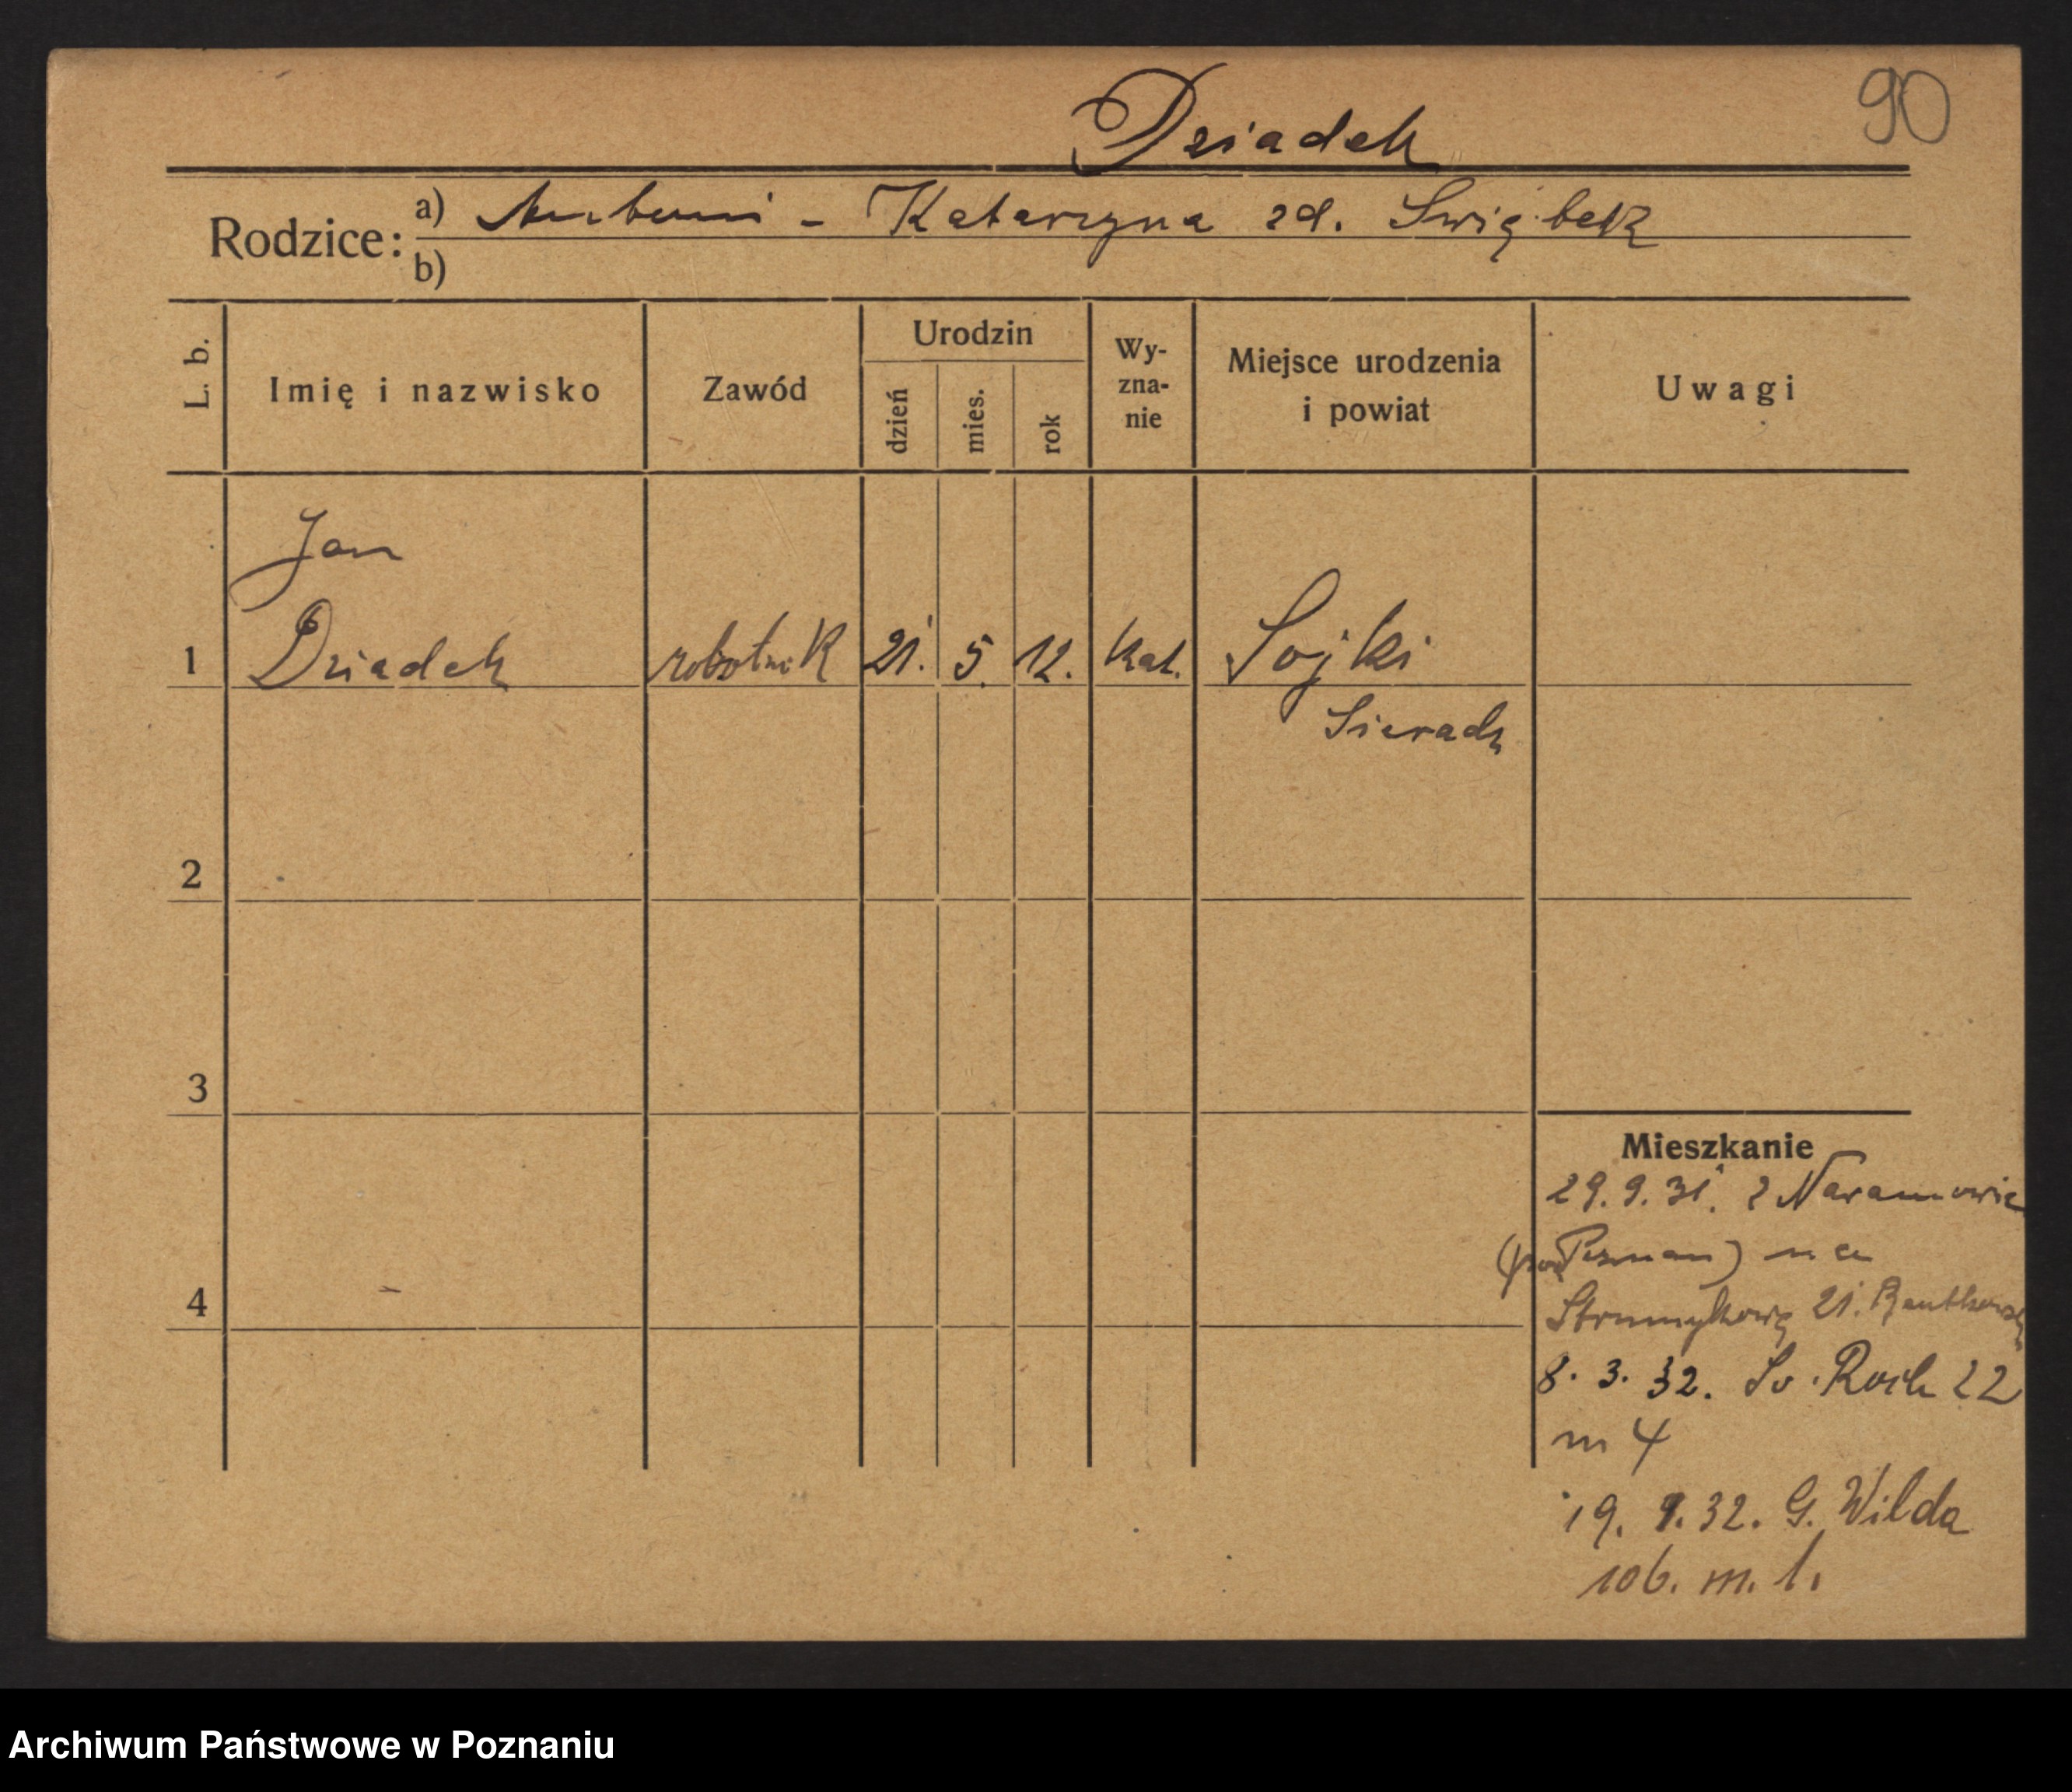 90
Dziadek
Rodzice: a) Antoni - Katarzyna zd. Swią
b)
L. b. Imię i nazwisko Zawód Urodzin dzień mies. rok Wy-zna-nie Miejsce urodzenia i powiat Uwagi
Jan
1 Dziadek robotnik 21. 5. 12. kat. Sojki
Sieradz
2
3
Mieszkanie
29. 9. 31. z Naramowic
(pod Poznan) na
4
Strumykową 21.
8. 3. 32. Sv. Roch 22
m 4
19. 9. 32. G. Wilda
106. m. 1.
Archiwum Państwowe w Poznaniu